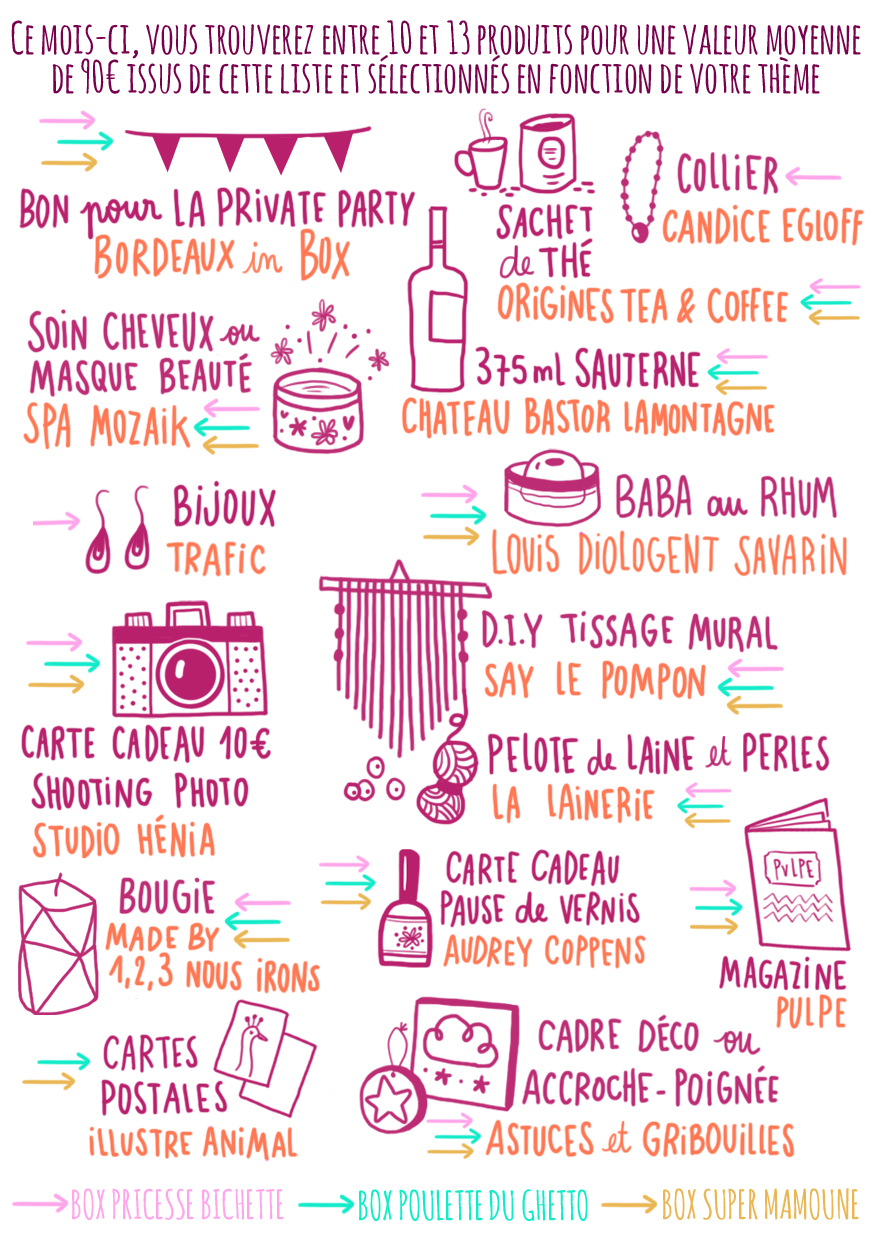 CE MOIS-CI, VOUS TROUVEREZ ENTRE 10 ET 13 PRODUITS POUR UNE VALEUR MOYENNE
DE 90€ ISSUS DE CETTE LISTE ET SÉLECTIONNÉS EN FONCTION DE VOTRE THÈME
BON pour LA PRIVATE PARTY
BORDEAUX in BOX
SACHET
de THÉ
ORIGINES TEA & COFFEE
COLLIER
CANDICE EGLOFF
SOIN CHEVEUX ou
MASQUE BEAUTÉ
SPA MOZAIK
375ml SAUTERNE
CHATEAU BASTOR LAMONTAGNE
BIJOUX
TRAFIC
BABA au RHUM
LOUIS DIOLOGENT SAVARIN
D.I.Y TISSAGE MURAL
SAY LE POMPON
CARTE CADEAU 10€
SHOOTING PHOTO
STUDIO HÉNIA
PELOTE de LAINE et PERLES
LA LAINERIE
BOUGIE
MADE BY
1,2,3 NOUS IRONS
CARTE CADEAU
PAUSE de VERNIS
AUDREY COPPENS
PULPE
MAGAZINE
PULPE
CARTES
POSTALES
ILLUSTRE ANIMAL
CADRE DÉCO ou
ACCROCHE-POIGNÉE
ASTUCES et GRIBOUILLES
BOX PRICESSE BICHETTE
BOX POULETTE DU GHETTO
BOX SUPER MAMOUNE